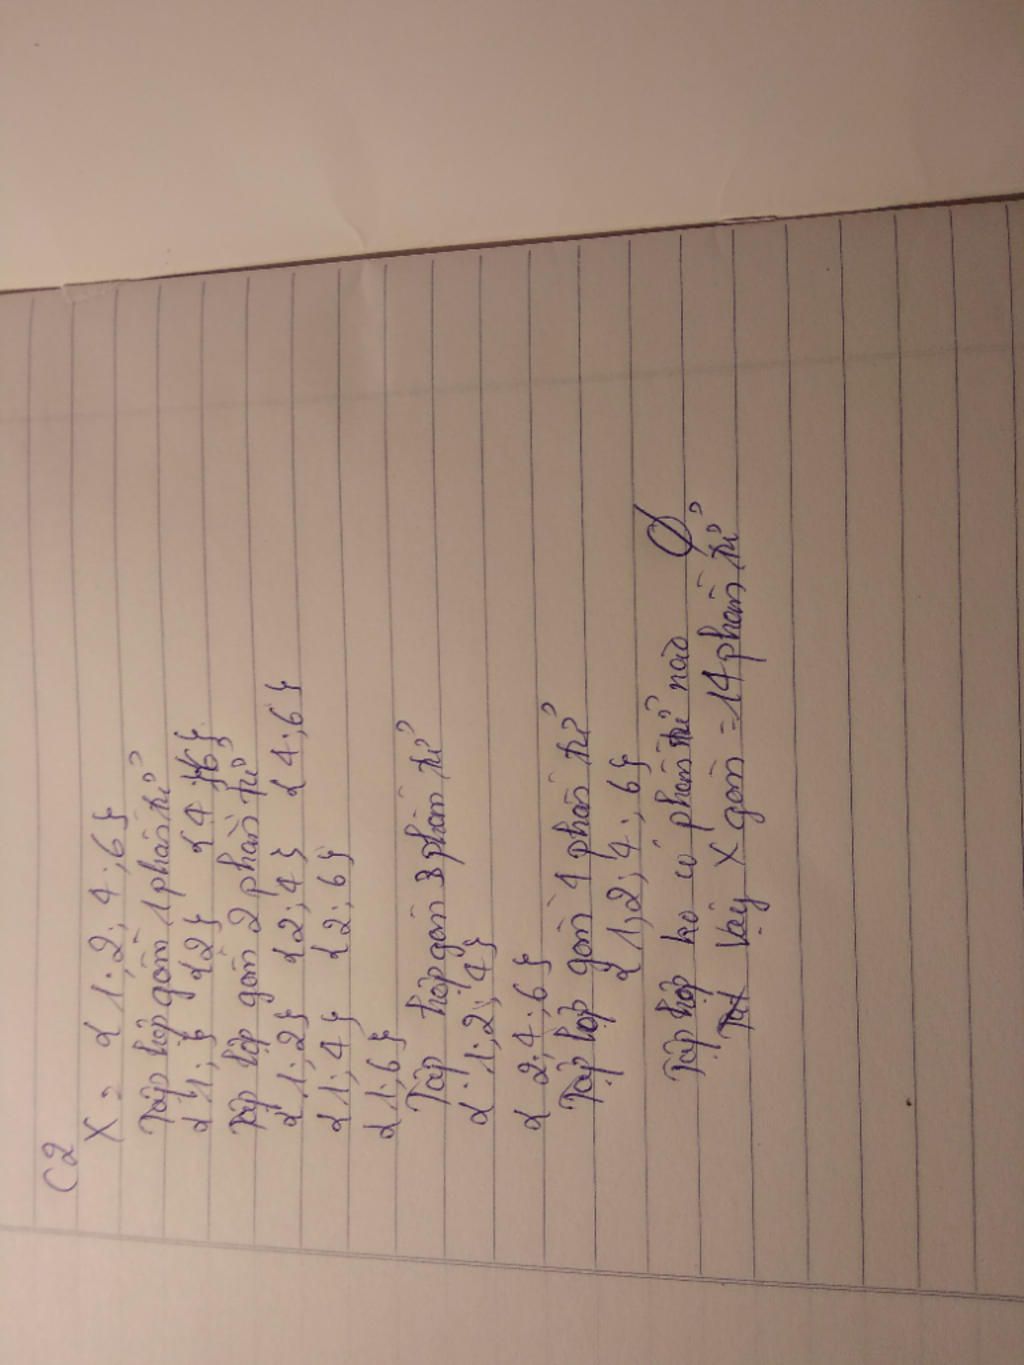 C2
X = { 1; 2; 4; 6 }
Tập hợp gồm 1 phần tử
{ 1; } { 2 } { 4 } { 6 }
Tập hợp gồm 2 phần tử
{ 1; 2 } { 2; 4 } { 4; 6 }
{ 1; 4 } { 2; 6 }
{ 1; 6 }
Tập hợp gồm 3 phần tử
{ 1; 2; 4 }
{ 2; 4; 6 }
Tập hợp gồm 4 phần tử
{ 1; 2; 4; 6 }
Tập hợp ko có phần tử nào Ø
Vậy X gồm = 14 phần tử